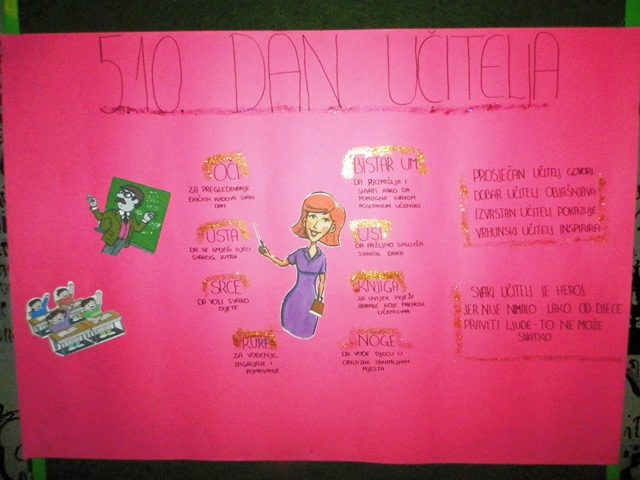 510. DAN UČITELJA
OČI
ZA PREGLEDAVANJE
ĐAČKIH RADOVA SVAKI
DAN
USTA
DA SE SMIJEŠI DJECI
SVAKOG JUTRA
SRCE
DA VOLI SVAKO
DIJETE
RUKE
ZA VOĐENJE,
ZAGRLJAJE I
POMAGANJE
BISTAR UM
DA RAZMIŠLJA I
SHVATI KAKO DA
POMOGNE SVAKOM
POSEBNOM UČENIKU
UŠI
DA PAŽLJIVO SASLUŠA
SVAKOG ĐAKA
KNJIGA
ZA UVIJEK SVJEŽE
ZNANJE KOJE PRENOSI
UČENICIMA
NOGE
DA VODE DJECU U
OBILAZAK ZANIMLJIVIH
MJESTA
PROSJEČAN UČITELJ GOVORI
DOBAR UČITELJ OBJAŠNJAVA
IZVRSTAN UČITELJ POKAZUJE
VRHUNSKI UČITELJ INSPIRIRA
SVAKI UČITELJ JE HEROJ
JER NIJE NIMALO LAKO OD DJECE
PRAVITI LJUDE-TO NE MOŽE
SVATKO